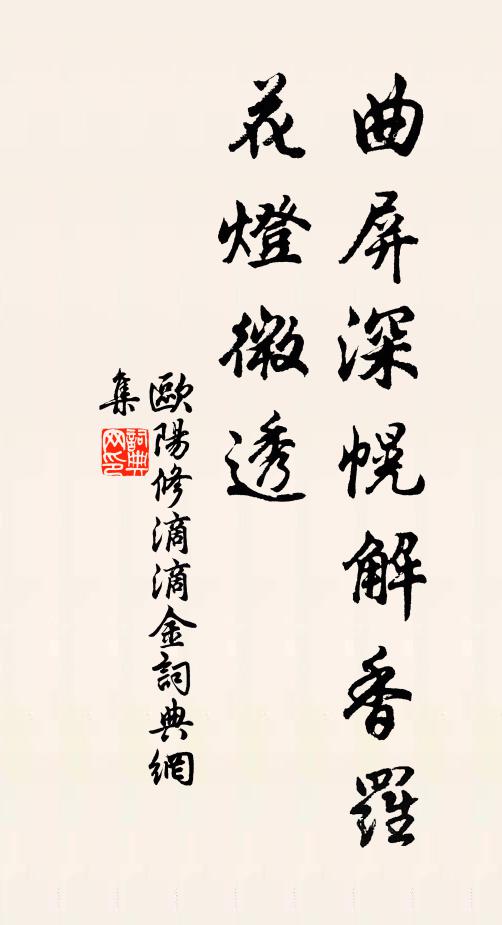 曲屏深幌解香羅
花燈微透
歐陽修滴滴金詞典網
集
詞典
网印